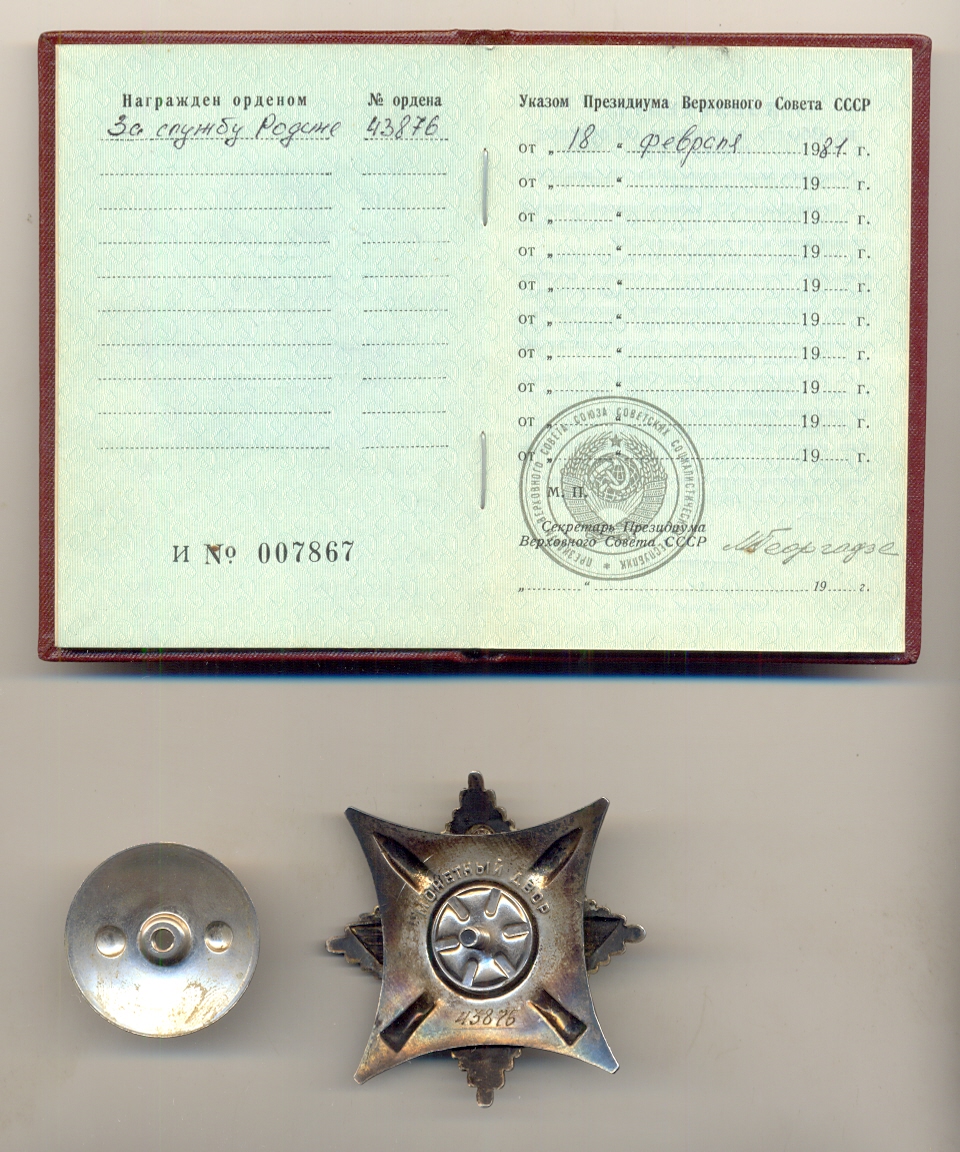 Награжден орденом № ордена
За службу Родине 43876
И № 007867
Указом Президиума Верховного Совета СССР
от „ 18 “ февраля 1981 г.
от „ “ 19 г.
от „ “ 19 г.
от „ “ 19 г.
от „ “ 19 г.
от „ “ 19 г.
от „ “ 19 г.
от „ “ 19 г.
от „ “ 19 г.
от „ “ 19 г.
ПРЕЗИДИУМ ВЕРХОВНОГО СОВЕТА СОЮЗА СОВЕТСКИХ СОЦИАЛИСТИЧЕСКИХ РЕСПУБЛИК
М. П.
Секретарь Президиума
Верховного Совета СССР
МГеоргадзе
„ “ 19 г.
МОНЕТНЫЙ ДВОР
43876